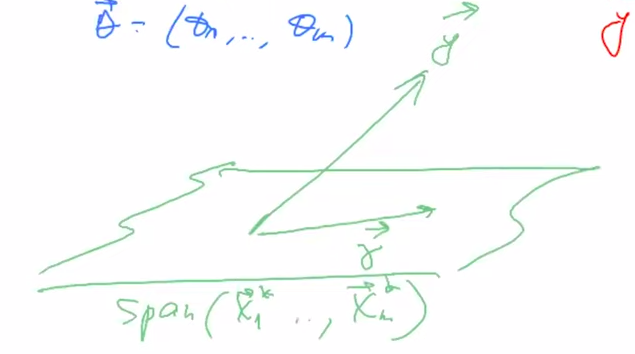 θ⃗ = (θ₁, .., θₘ)
y⃗
y
γ⃗
span(x⃗₁* .., x⃗ₘ*)